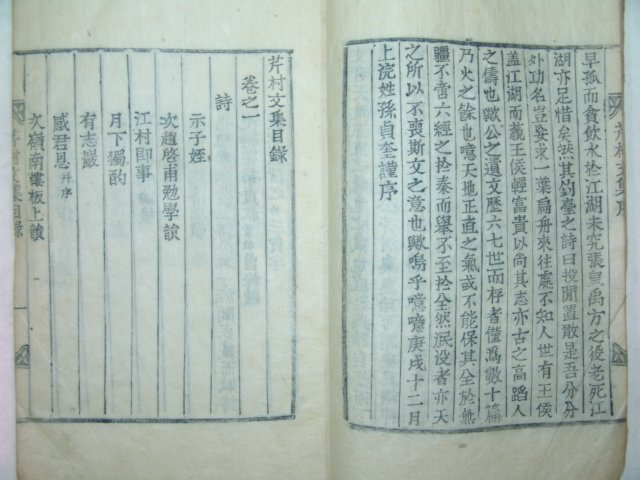 早孤而貪飮水於江湖未究張皇禹方之後老死江
湖亦足惜矣然其釣臺之詩曰投閒置散是吾分分
外功名豈妄求一葉扁舟來往處不知人世有王侯
盖江湖而藐王侯輕富貴以尚其志亦古之高蹈人
之儔也歟公之遺文歷六七世而存者僅爲數十篇
乃火之餘也噫天地正直之氣或不能保其全於無
疆不啻六經之於秦而擧不至於全然泯沒者亦天
之所以不喪斯文之意也歟嗚乎噫噫庚戌十二月
上浣姓孫貞奎謹序
芹村文集序
芹村文集目錄
卷之一
詩
示子姪
次趙啓甫勉學韻
江村卽事
月下獨酌
有志巖
感君恩幷序
次嶺南樓板上韻
芹村文集目錄
一